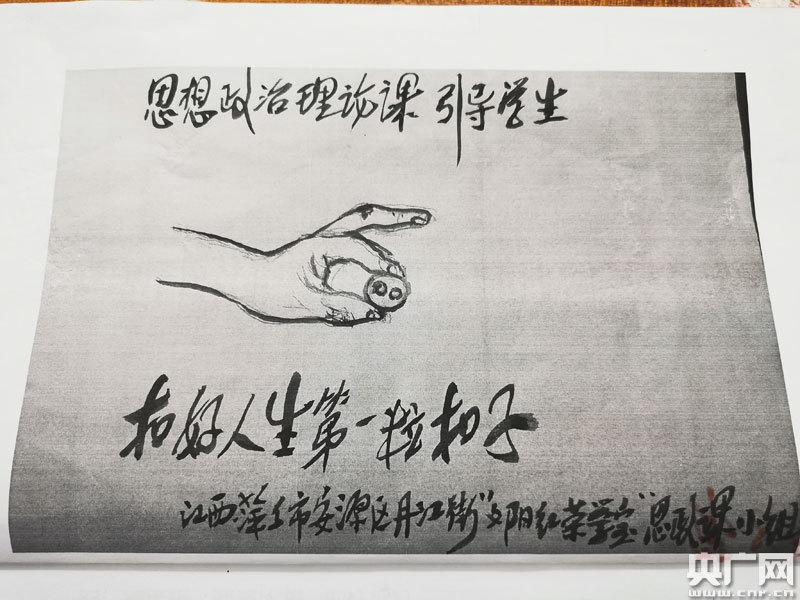 思想政治理论课 引导学生
扣好人生第一粒扣子
江西萍乡市安源区丹江街"夕阳红荣学堂"思政课小组
央广网
www.cnr.cn